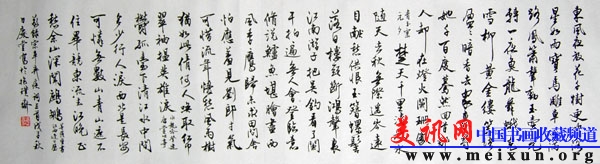 東風夜放花千樹更吹落
星如雨寶馬雕車香滿
路鳳簫聲動玉壺光
轉一夜魚龍舞蛾兒
雪柳黃金縷笑語
盈盈暗香去衆裏尋
她千百度驀然回首那
人却在燈火闌珊處
青玉案元夕 楚天千里清秋水
隨天去秋無際遙岑遠
目獻愁供恨玉簪螺髻
落日樓頭斷鴻聲裏
江南游子把吳鈎看了闌
干拍遍無人會登臨意
休說鱸魚堪鱠盡西
風季鷹歸未求田問舍
怕應羞見劉郎才氣
可惜流年憂愁風雨樹
猶如此倩何人喚取紅
巾翠袖搵英雄淚
鬱孤臺下清江水中間
多少行人淚西北是長安
可憐無數山青山遮不
住畢竟東流去江晚正
愁余山深聞鷓鴣
美讯网
中国书画收藏频道
www.meixun.org